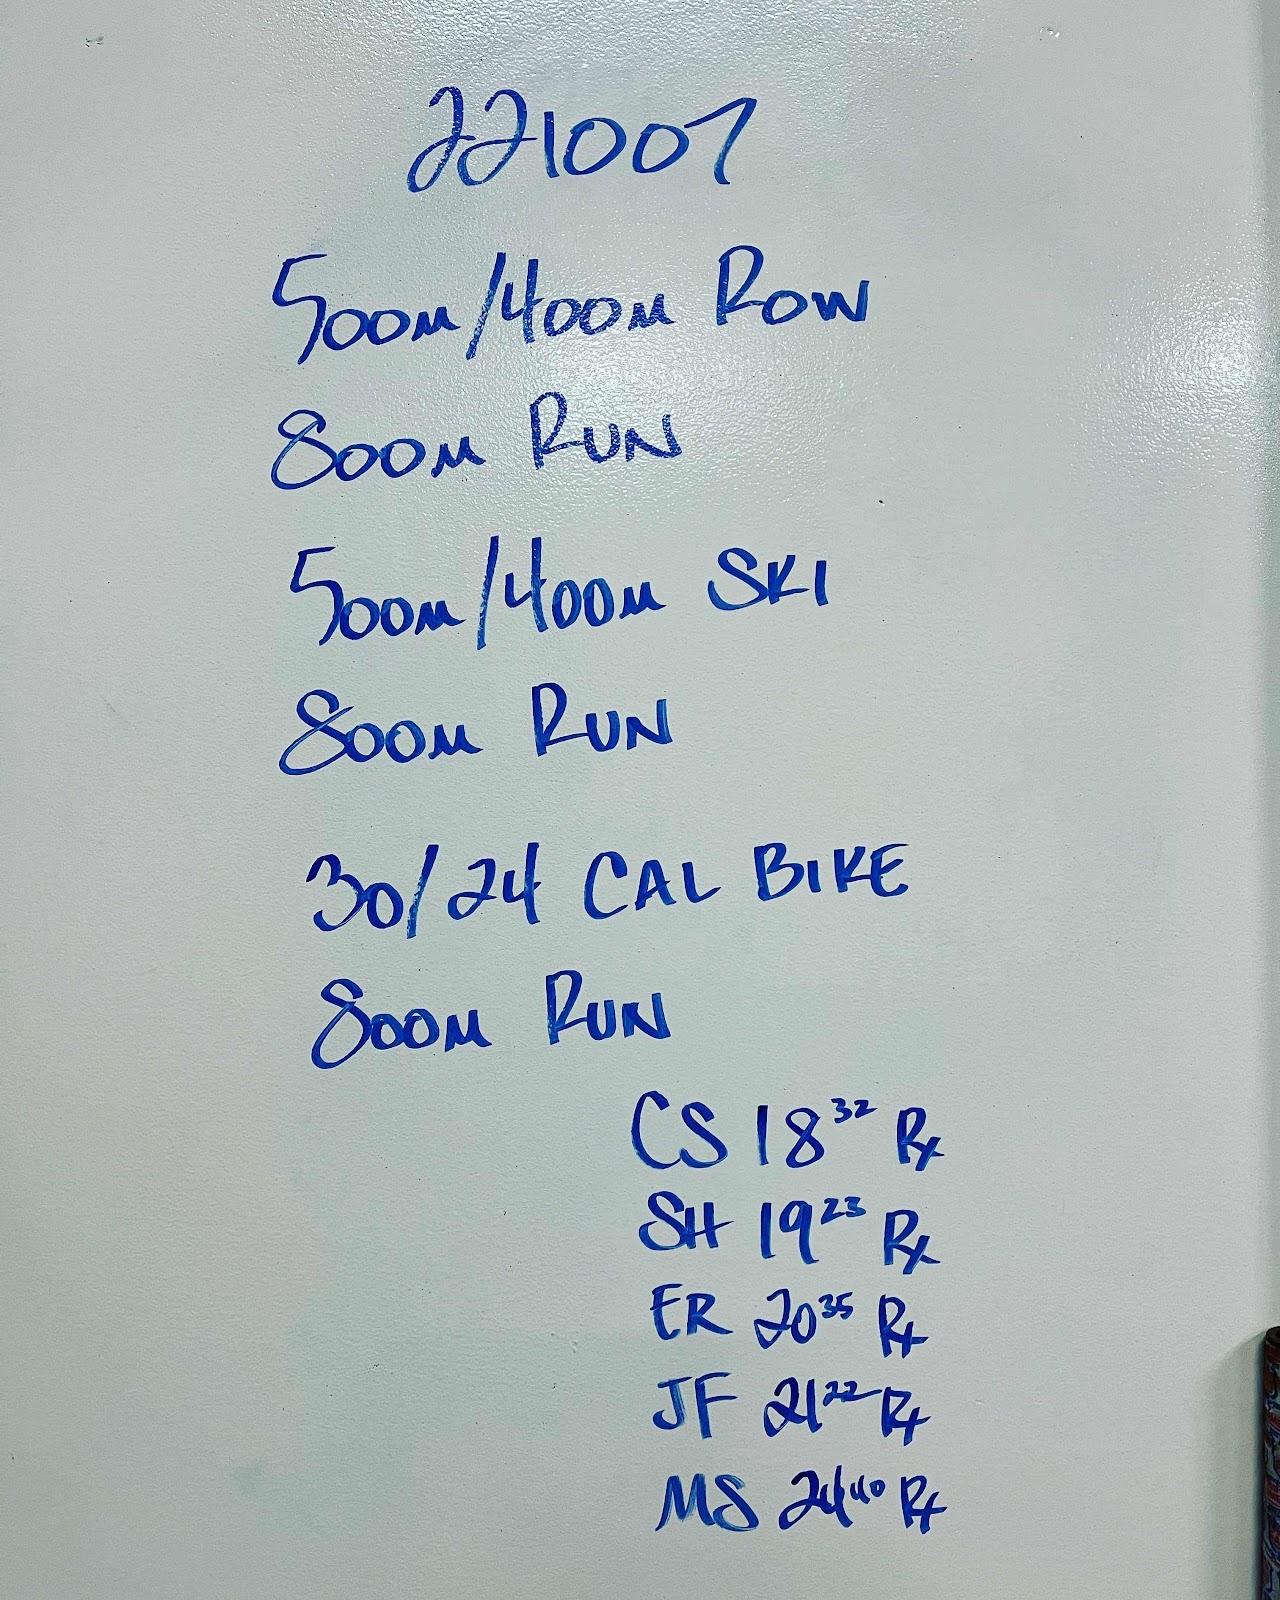 221007
500m/400m Row
800m Run
500m/400m Ski
800m Run
30/24 Cal Bike
800m Run
CS 18³² Rx
SH 19²³ Rx
ER 20³⁵ Rx
JF 21²² Rx
MS 24⁴⁰ Rx